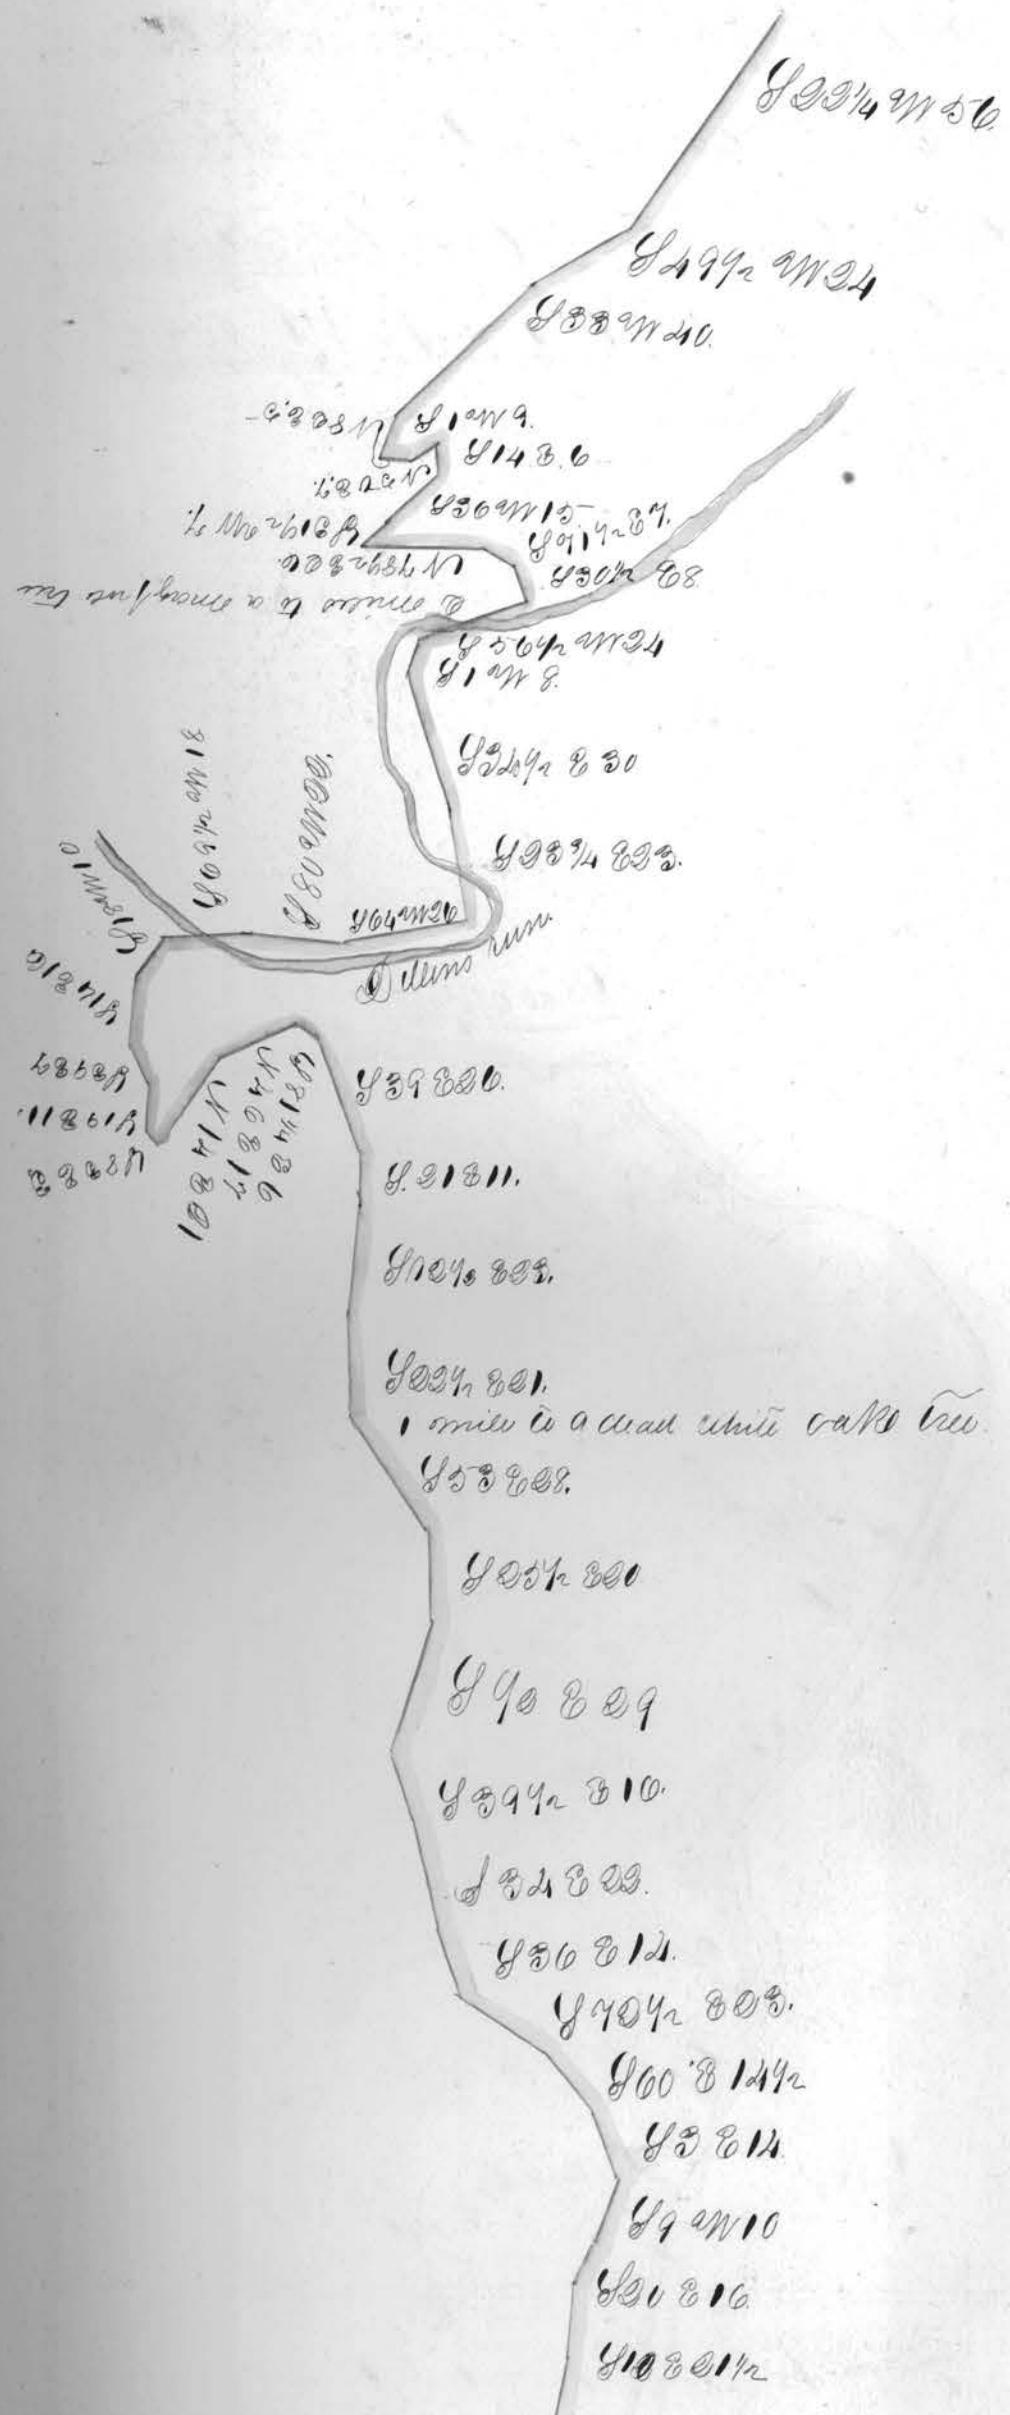 S22¼ W 56.
S49½ W24
S33 W 40.
S1 W 9.
N 8 E 2.5
S14 E. 6
N50 E 7.
S36 W 15
S31½ W 7.
N78½ E 26.
S30½ E8.
2 miles to a tree
S 56½ W24
S1 W 8.
S34½ E 30
S23¾ E23.
S64 W26
S80 W 22.
Dillins run.
S14 E 16
S39 E 7
S19 E 11.
N14 E 21
N46 E 17
S81¼ E 6
S39 E26.
S.21 E11.
S12½ E23.
S22½ E21.
1 mile to a dead white oake tree.
S53 E28.
S25½ E20
S ½ E 29
S39½ E 16.
S34 E 22.
S36 E 14.
S72½ E23.
S60 E 14½
S3 E14.
S9 W 10
S20 E 16.
S10 E 21½